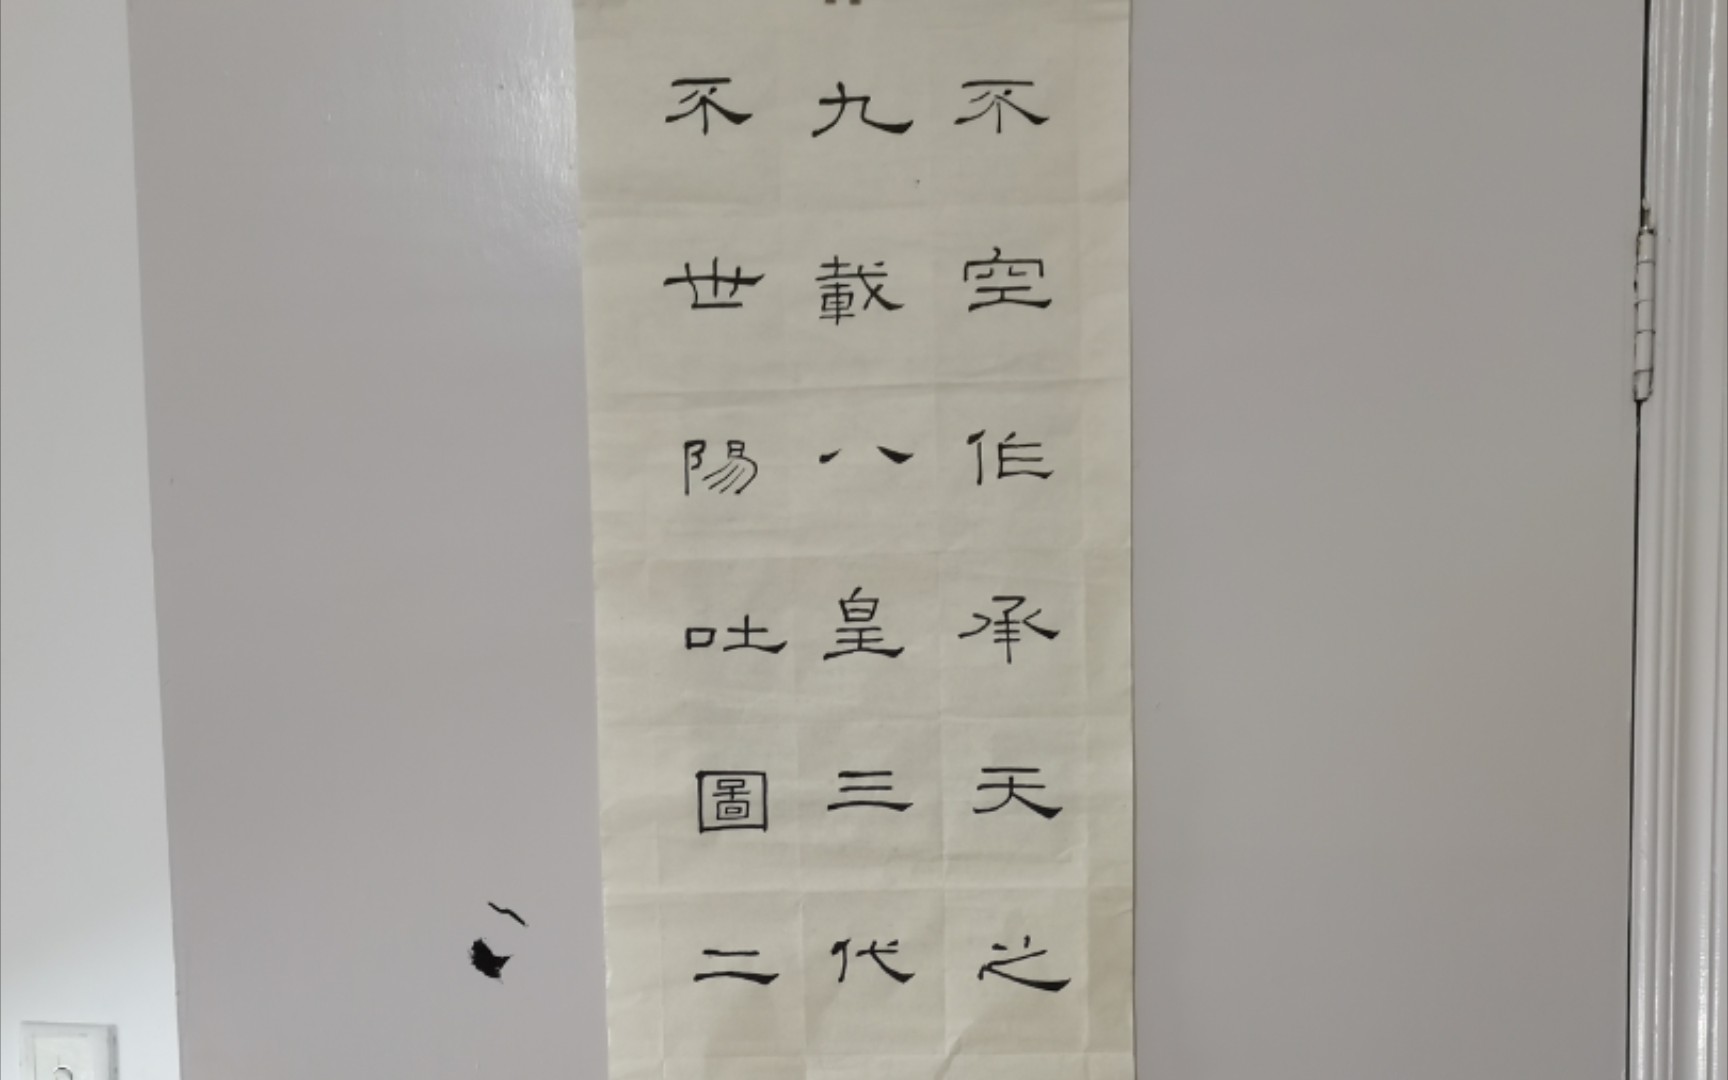 不空作承天之
九載八皇三代
不世陽吐圖二